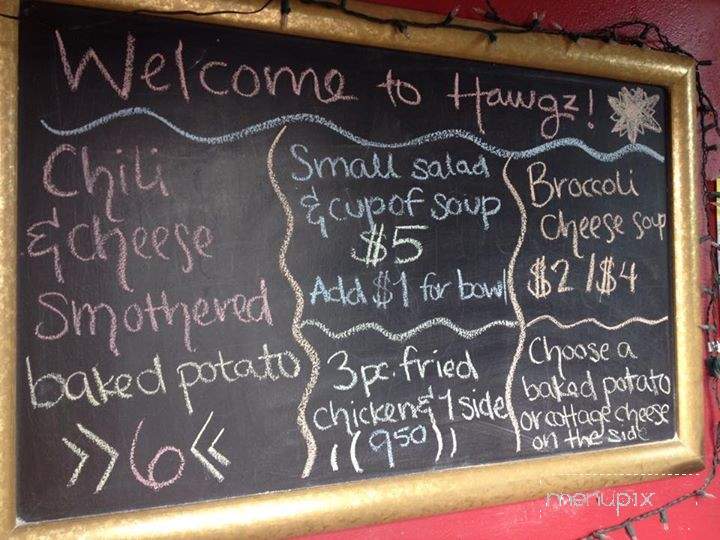 Welcome to Hawgz!
Chili
& cheese
Smothered
baked potato
>> 6 <<
Small salad
& cup of soup
$5
Add $1 for bowl
3 pc. fried
chicken & 1 side
((950))
Broccoli
cheese soup
$2 / $4
Choose a
baked potato
or cottage cheese
on the side
menupix